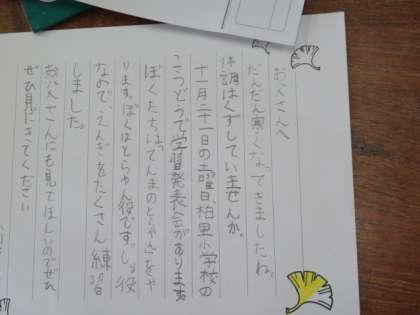 お父さんへ
だんだん寒くなってきましたね。
体調はくずしていませんか。
十一月二十一日の土曜日、柏里小学校の
こうどうで学習発表会があります。
ぼくたちは、「でんまのとらやん」をや
ります。ぼくはとらやん役です。しゅ役
なので、えんぎをたくさん練習
しました。
お父さんにも見てほしいのでぜひ
ぜひ見にきてください